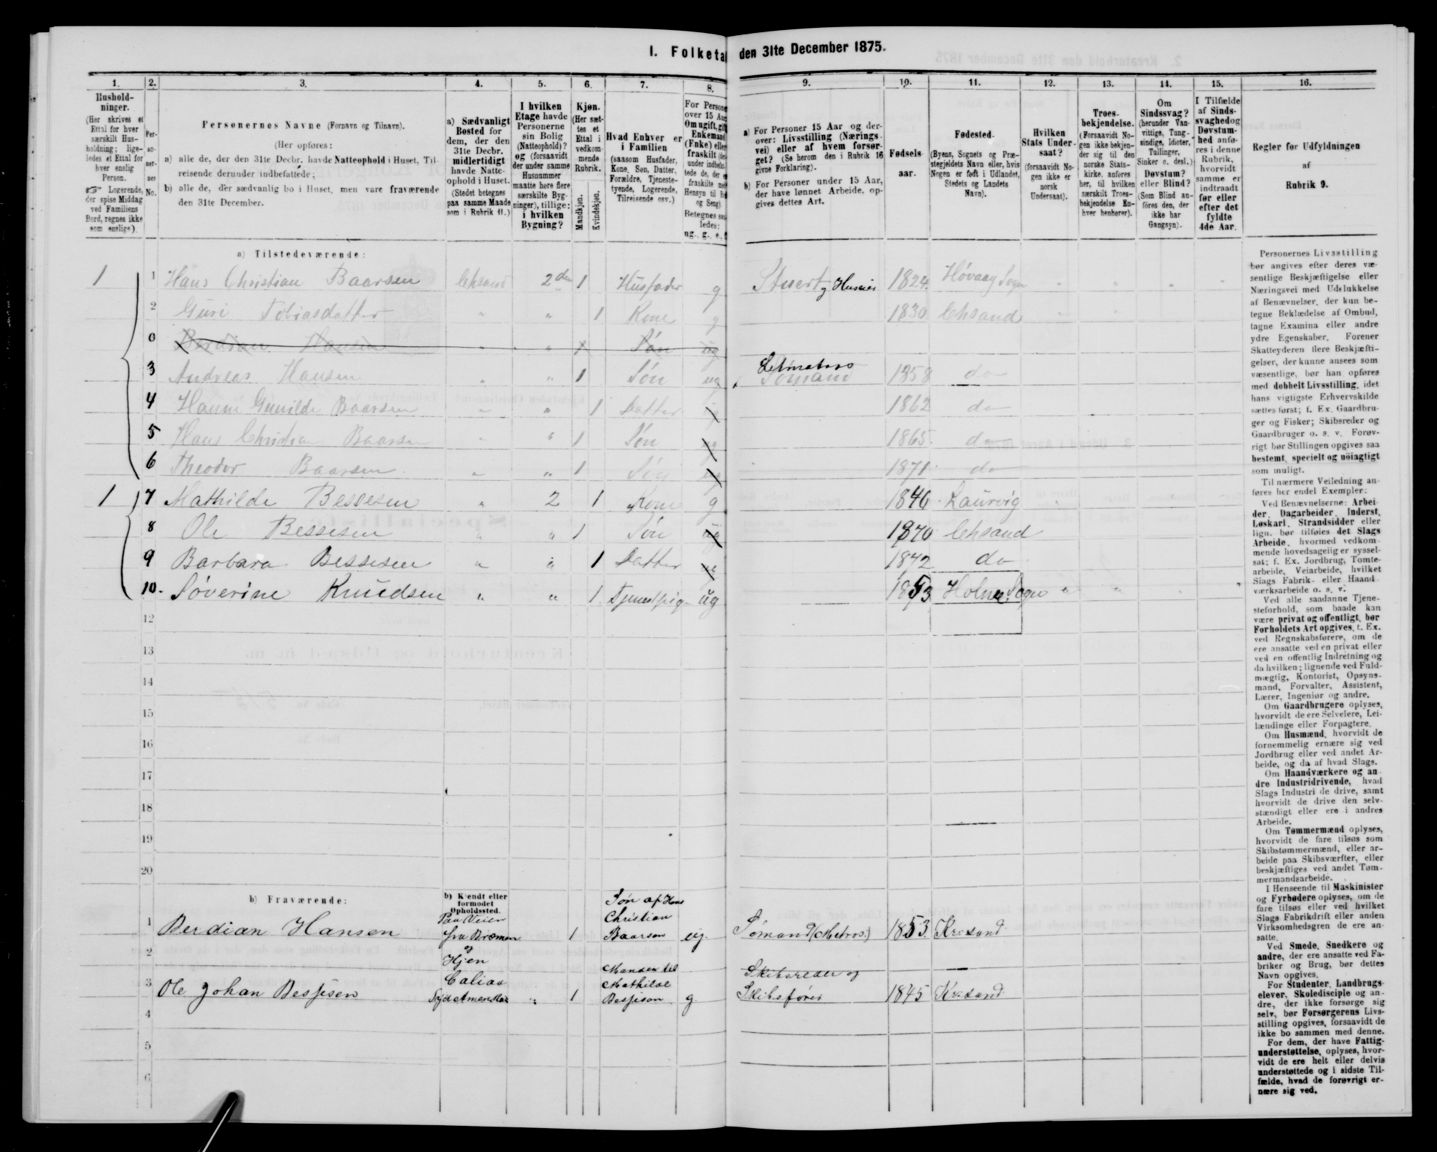 I. Folketal den 31te December 1875.
1. 2. 3. 4. 5. 6. 7. 8. 9. 10. 11. 12. 13. 14. 15. 16.
Husholdninger.
(Her skrives et Ettal for hver særskilt Husholdning; ligeledes et Ettal for hver enslig Person.
Logerende, der spise Middag ved Familiens Bord, regnes ikke som enslige).
Personernes Navne (Fornavn og Tilnavn).
(Her opføres:
a) alle de, der den 31te Decbr. havde Natteophold i Huset, Tilreisende derunder indbefattede;
b) alle de, der sædvanlig bo i Huset, men vare fraværende den 31te December.
a) Sædvanligt Bosted for dem, der den 31te Decbr. midlertidigt havde Natteophold i Huset.
(Stedet betegnes paa samme Maade som i Rubrik 11.)
I hvilken Etage havde Personerne sin Bolig (Natteophold)? og (forsaavidt der under samme Husnummer maatte høre flere særskilte Bygninger), tillige: i hvilken Bygning?
Kjøn. (Her sættes et Ettal i vedkommende Rubrik.
Mandkjøn. Kvindekjøn.
Hvad Enhver er i Familien
(saasom Husfader, Kone, Søn, Datter, Forældre, Tjenestetyende, Logerende, Tilreisende osv.)
a) For Personer 15 Aar og derover: Livsstilling (Næringsvei) eller af hvem forsørget? (Se herom den i Rubrik 16 givne Forklaring).
b) For Personer under 15 Aar, der have lønnet Arbeide, opgives dettes Art.
Fødselsaar.
Fødested.
(Byens, Sognets og Præstegjeldets Navn eller, hvis Nogen er født i Udlandet, Stedets og Landets Navn).
Hvilken Stats Undersaat?
(forsaavidt Nogen ikke er norsk Undersaat).
Troesbekjendelse.
(Forsaavidt Nogen ikke bekjender sig til den norske Statskirke, anføres her, til hvilken Troesbekjendelse Enhver henhører).
Om Sindssvag? (herunder Vanvittige, Tungsindige, Idioter, Tullinger, Sinker o. desl.) Døvstum? eller Blind? (Som Blind anføres den, der ikke har Gangsyn).
I Tilfælde af Sindssvaghed og Døvstumhed anføres i denne Rubrik, hvorvidt samme er indtraadt før eller efter det fyldte 4de Aar.
Regler før Udfyldningen af Rubrik 9.
a) Tilstedeværende:
1 1 Hans Christian Baarsen Chsand 2den 1 Husfader g 1824 Høvaag Sogn
2 Guri Tobiasdatter " " 1 Kone g 1830 Chsand
0 Berdian Hansen " " Søn ug
3 Andreas Hansen " " 1 Søn ug Sømand 1858 do
4 Hanne Gunilde Baarsen " " 1 Datter 1862 do
5 Hans Christian Baarsen " 1 Søn 1865 do
6 Theodor Baarsen " " 1 Søn 1871 do
1 7 Mathilde Bessesen " 2 1 Kone g 1846 Laurvig
8 Ole Bessesen " " 1 Søn ug 1870 Chsand
9 Barbara Bessesen " " 1 Datter 1842 do
10 Søverine Knudsen " " 1 Tjenestpig ug 1853 Sogn
12
13
14
15
16
17
18
19
20
b) Fraværende:
b) Kjendt eller formodet Opholdssted.
1 Berdian Hansen Paa Veien fra Bremen Hjem 1 Søn af Hans Christian Baarsen ug Sømand (Matros.) 1853 Krsand
3 Ole Johan Bessesen Syd Amerika " 1 Manden til Mathilde Bessesen g Skibsreder og Skibsfører 1845 Krsand
4
5
6
Personernes Livsstilling bør angives efter deres væsentlige Beskjæftigelse eller Næringsvei med Udelukkelse af Benævnelser, der kun betegne Beklædelse af Ombud, tagne Examina eller andre ydre Egenskaber. Forener Skatteyderen flere Beskjæftigelser, der kunne ansees som væsentlige, bør han opføres med dobbelt Livsstilling, idet hans vigtigste Erhvervskilde sættes først; f. Ex. Gaardbruger og Fisker; Skibsreder og Gaardbruger o. s. v. Forøvrigt bør Stillingen opgives saa bestemt, specielt og nøiagtigt som muligt.
Til nærmere Veiledning anføres her endel Exempler:
Ved Benævnelserne: Arbeider, Dagarbeider, Inderst, Løskarl, Strandsidder eller lign. bør tilføies det Slags Arbeide, hvormed vedkommende hovedsagelig er sysselsat; f. Ex. Jordbrug, Tomtearbeide, Veiarbeide, hvilket Slags Fabrik- eller Haandværksarbeide o. s. v.
Ved alle saadanne Tjenesteforhold, som baade kan være privat og offentligt, bør Forholdets Art opgives, f. Ex. ved Regnskabsførere, om de ere ansatte ved en privat eller ved en offentlig Indretning og da hvilken; lignende ved Fuldmægtig, Kontorist, Opsynsmand, Forvalter, Assistent, Lærer, Ingeniør og andre.
Om Gaardbrugere oplyses, hvorvidt de ere Selveiere, Leilændinge eller Forpagtere.
Om Husmænd, hvorvidt de fornemmelig ernære sig ved Jordbrug eller ved andet Arbeide, og da af hvad Slags.
Om Haandværkere og andre Industridrivende, hvad Slags Industri de drive, samt hvorvidt de drive den selvstændigt eller ere i andres Arbeide.
Om Tømmermænd oplyses, hvorvidt de fare tilsøs som Skibstømmermænd, eller arbeide paa Skibsværfter, eller beskjæftiges ved andet Tømmermandsarbeide.
I Henseende til Maskinister og Fyrbødere oplyses, om de fare tilsøs eller ved hvilket Slags Fabrikdrift eller anden Virksomhedsgren de ere ansatte.
Ved Smede, Snedkere og andre, der ere ansatte ved Fabriker og Brug, bør dettes Navn opgives.
For Studenter, Landbrugselever, Skoledisciple og andre, der ikke forsørge sig selv, bør Forsørgerens Livsstilling opgives, forsaavidt de ikke bo sammen med denne.
For dem, der have Fattigunderstøttelse, oplyses, hvorvidt de ere helt eller delvis understøttede og i sidste Tilfælde, hvad de forøvrigt ernære sig ved.